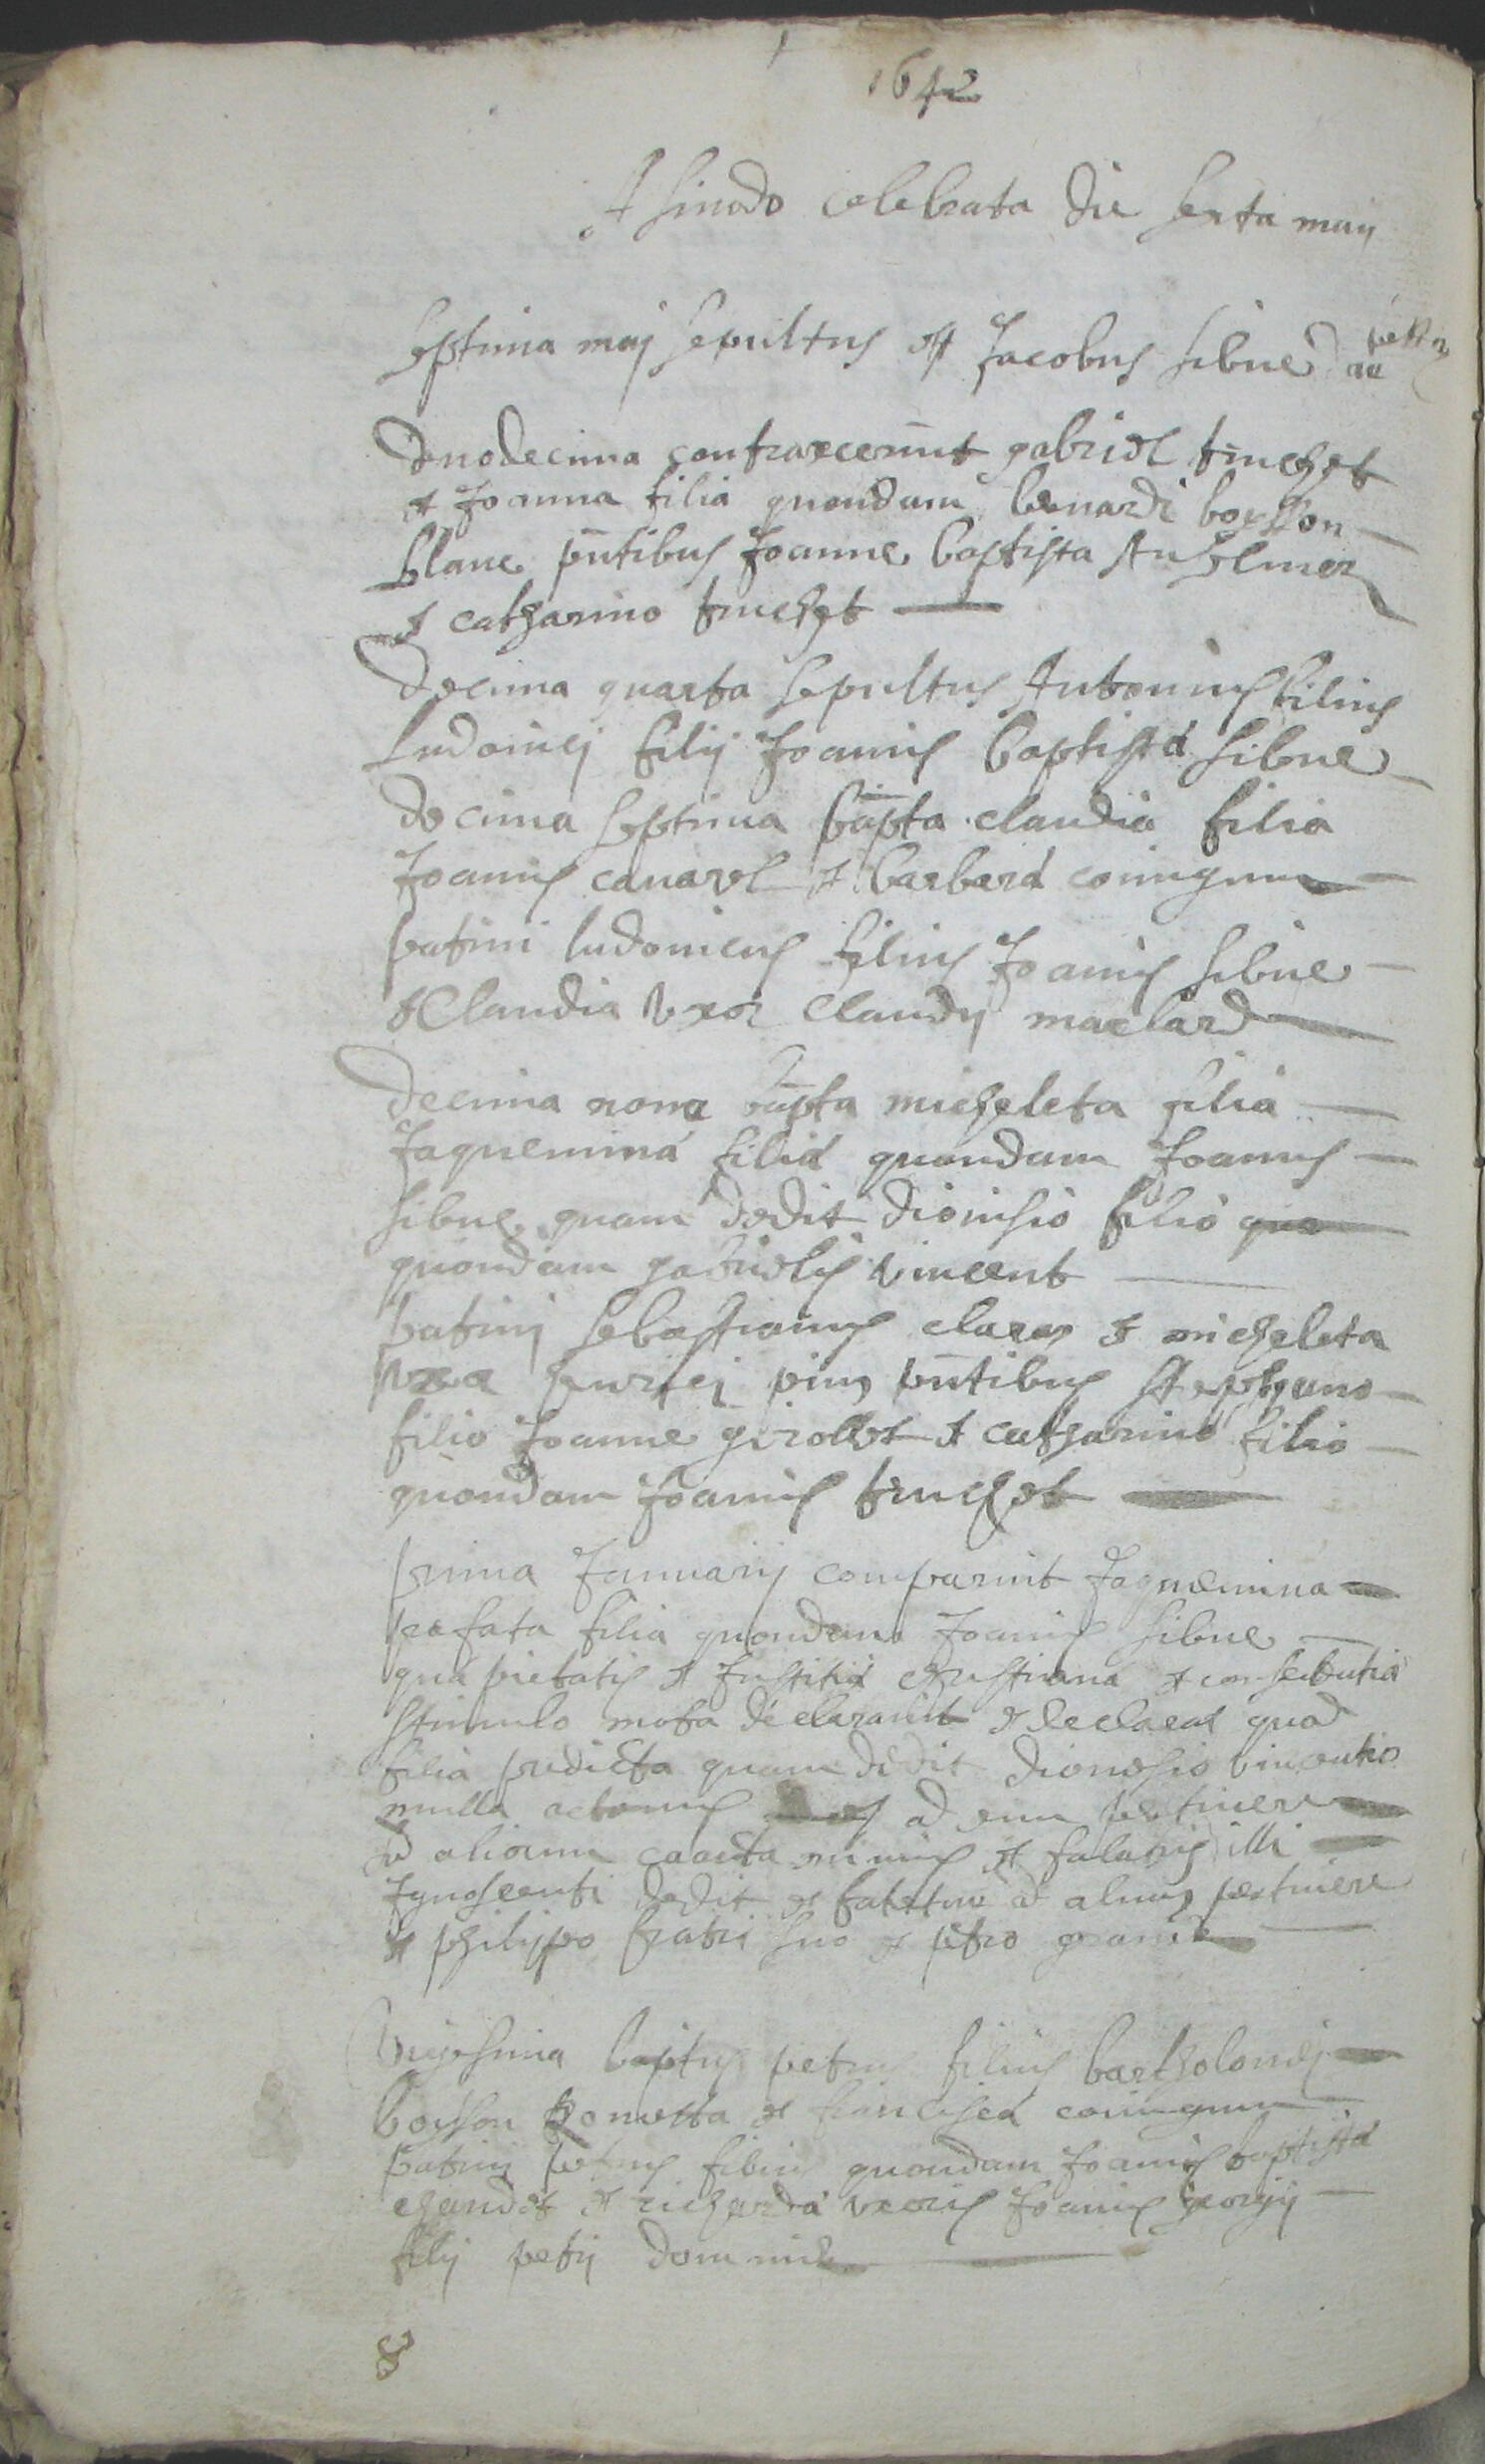 1642
A sinodo celebrata die sexta maij
septima maij sepultus est Jacobus sibue
duodecima contraxcerunt gabriel truchet
et Joanna filia quondam bernardi boysson
blanc pntibus Joanne baptista Anselmer
et catharino truchet
decima quarta sepultus Antonius filius
Ludovici filij Joanis baptistæ sibue
decima septima bapta claudia filia
Joanis canarel et barbaræ coniugum
patrini ludovicus filius Joanis sibue
et Claudia uxor Claudij maelard
decima nona bapta micheleta filia
Jaqueminæ filiæ quondam Joanis
sibue quam dedit dionisio filio que
quondam gabrielis vincent
patrini sebastianus clarer et micheleta
uxor pntibus stephano
filio Joanne girollet et catharino filio
quondam Joanis truchet
prima Januarij comparuit Jaquemina
prefata filia quondam Joanis sibue
quæ pietatis et Justitiæ christiana et conscientiæ
stimulo mota declaravit et declarat quod
filia predicta quam dedit dionesio vincentio
nulla actenus ad eum pertinere
ad alienum coacta minis et salarij illi
Jgnoscenti dedit et fatetur ad alium pertinere
et philippo fratri suo et petro grand
Vigesima baptus petrus filius bartholomei
boysson et francisca coniugum
patrini petrus filius quondam Joanis baptistæ
chaudet et richarda uxoris Joanis georgij
filij petri dominic